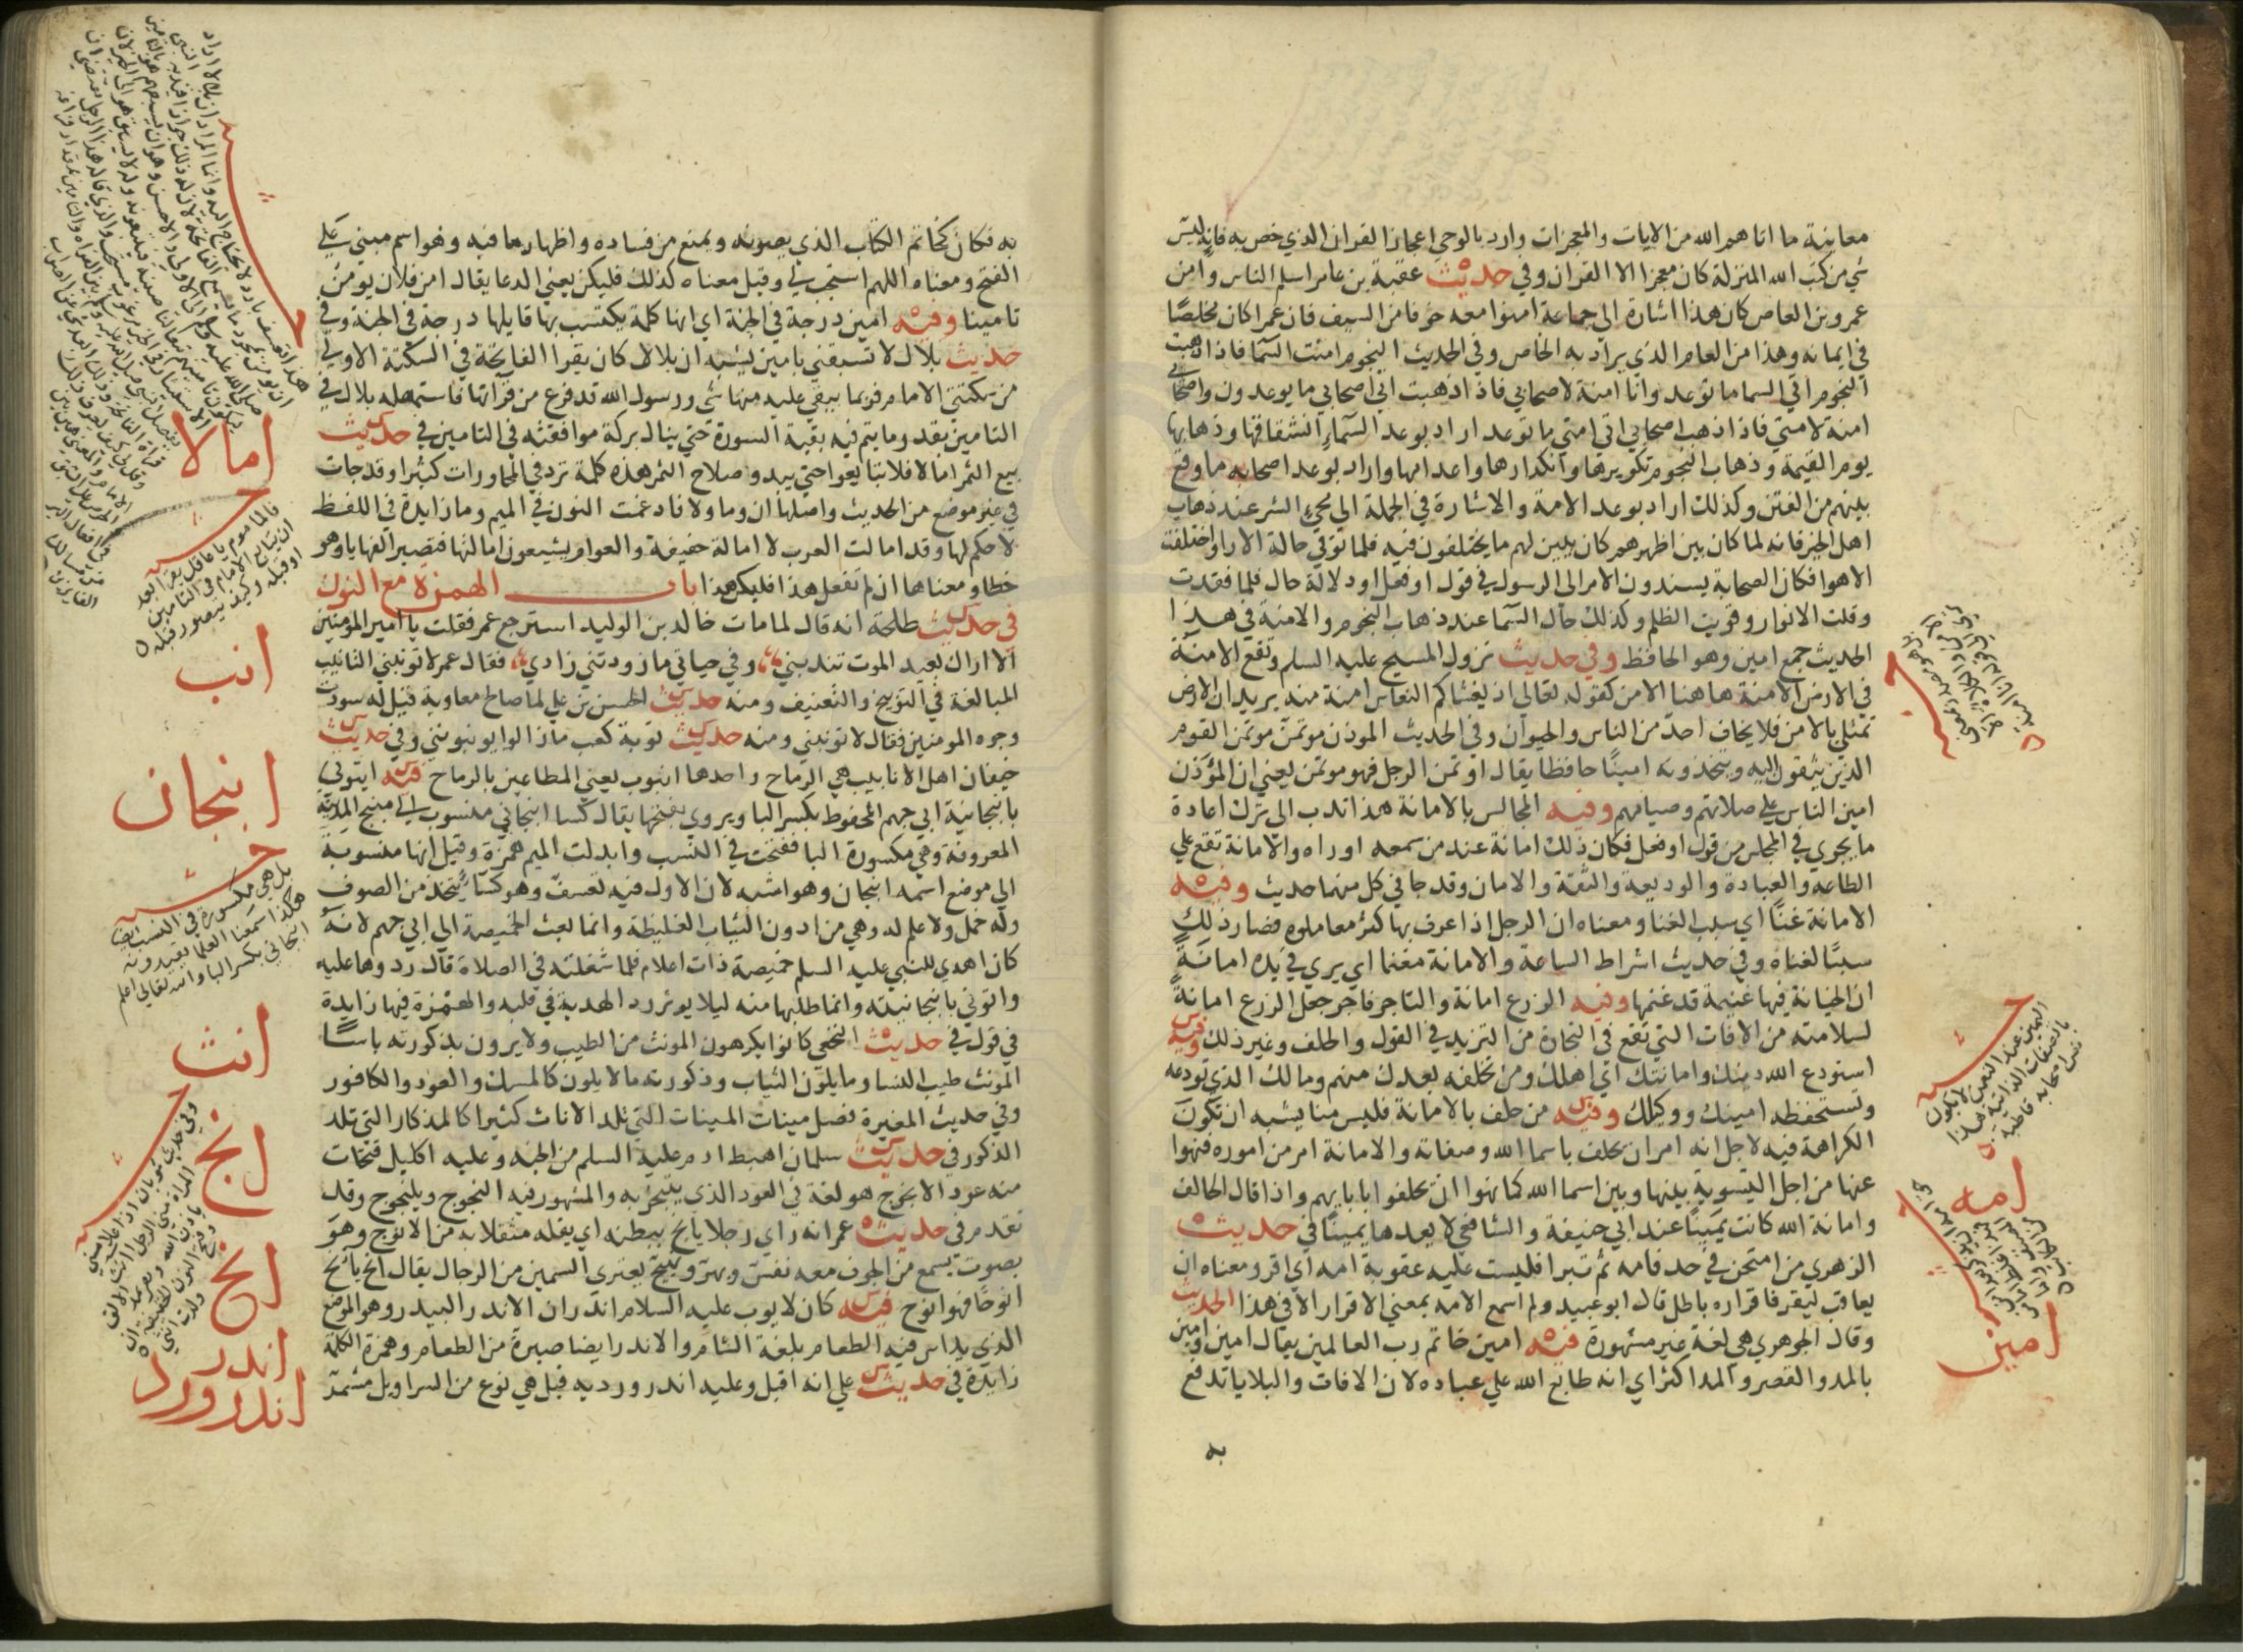 معاينة ما اتاهم الله من الايات والمعجزات واراد بالوحي اعجاز القران الذي خص به فانه ليس
شي من كتب الله المنزلة كان معجزا الا القران وفي حديث عقبة بن عامر اسلم الناس وامن
عمرو بن العاص كان هذا اشارة الي جماعة امنوا معه خوفا من السيف فان عمرا كان مخلصا
في ايمانه وهذا من العام الذي يراد به الخاص وفي الحديث النجوم امنة السما فاذا ذهبت
النجوم اتي السما ما توعد وانا امنة لاصحابي فاذا ذهبت اتي اصحابي ما يوعدون واصحابي
امنة لامتي فاذا ذهب اصحابي اتي امتي ما توعد اراد بوعد السماء انشقاقها وذهابها
يوم القيمة وذهاب النجوم تكويرها وانكدارها واعدامها واراد بوعد اصحابه ما وقع
بينهم من الفتن وكذلك اراد بوعد الامة والاشارة في الجملة الي مجيء الشر عند ذهاب
اهل الخير فانه لما كان بين اظهرهم كان يبين لهم ما يختلفون فيه فلما توفي حالة الارا واختلفت
الاهوا فكان الصحابة يسندون الامر الي الرسول في قول او فعل او دلالة حال فلما فقدت
وقلت الانوار وقويت الظلم وكذلك حال السما عند ذهاب النجوم والامنة في هذا
الحديث جمع امين وهو الحافظ وفي حديث نزول المسيح عليه السلم وتقع الامنة
في الارض الامنة هاهنا الامن كقوله تعالي اذ يغشاكم النعاس امنة منه يريد ان الارض
تمتلي بالامن فلا يخاف احد من الناس والحيوان وفي الحديث الموذن موتمن موتمن القوم
الذين يثقون اليه ويتخذونه امينا حافظا يقال اوتمن الرجل فهو موتمن يعني ان المؤذن
امين الناس علي صلاتهم وصيامهم وفيه المجالس بالامانة هذا ندب الي ترك اعادة
ما يجري في المجلس من قول او فعل فكان ذلك امانة عند من سمعه او راه والامانة تقع علي
الطاعه والعبادة والوديعة والثقة والامان وقد جا في كل منها حديث وفيه
الامانة غنا اي سبب الغنا ومعناه ان الرجل اذا عرف بها كثر معاملوه فصار ذلك
سببا لغناه وفي حديث اشراط الساعة والامانة مغنما اي يري في يده امانة
ان الخيانة فيها غنيمة قد غنمها وفيه الزرع امانة والتاجر فاجر جعل الزرع امانة
لسلامته من الافات التي تقع في التجارة من التزيد في القول والحلف وغير ذلك وفيه
استودع الله دينك وامانتك اي اهلك ومن تخلفه بعدك منهم ومالك الذي تودعه
وتستحفظه امينك ووكيلك وفيه من حلف بالامانة فليس منا يشبه ان تكون
الكراهة فيه لاجل انه امر ان يحلف باسما الله وصفاته والامانة امر من اموره فنهوا
عنها من اجل التسوية بينها وبين اسما الله كما نهوا ان يحلفوا بابايهم واذا قال الحالف
وامانة الله كانت يمينا عند ابي حنيفة والشافعي لا يعدها يمينا في حديث
الزهري من امتحن في حد فامه ثم تبرا فليست عليه عقوبة امه اي اقر ومعناه ان
يعاقب ليقر فاقراره باطل قال ابو عبيد ولم اسمع الامه بمعني الاقرار الا في هذا الحديث
وقال الجوهري هي لغة غير مشهورة فيه امين خاتم رب العالمين يقال امين وامين
بالمد والقصر والمد اكثر اي انه طابع الله علي عباده لان الافات والبلايا تدفع
به
امه
امين
به فكان كخاتم الكتاب الذي يصونه ويمنع من فساده واظهار ما فيه وهو اسم مبني علي
الفتح ومعناه اللهم استجب لي وقيل معناه كذلك فليكن يعني الدعا يقال امن فلان يومن
تامينا وفيه امين درجة في الجنة اي انها كلمة يكتسب بها قايلها درجة في الجنة وفي
حديث بلال لا تسبقني بامين يشبه ان بلالا كان يقرا الفاتحة في السكتة الاولي
من سكتتي الامام فربما يبقي عليه منها شي ورسول الله قد فرغ من قراتها فاستمهله بلال في
التامين بقدر ما يتم فيه بقية السورة حتي ينال بركة موافقته في التامين في حديث
بيع الثمر اما لا فلا تبايعوا حتي يبدو صلاح الثمر هذه كلمة ترد في المحاورات كثيرا وقد جات
في غير موضع من الحديث واصلها ان وما ولا فادغمت النون في الميم وما زايدة في اللفظ
لا حكم لها وقد امالت العرب لا امالة خفيفة والعوام يشبعون امالتها فتصير الفها ياوهو
خطا ومعناها ان لم تفعل هذا فليكن هذا باب الهمزة مع النون
في حديث طلحة انه قال لما مات خالد بن الوليد استرجع عمر فقلت يا امير المومنين
الا اراك بعيد الموت تندبني وفي حياتي ما زودتني زادي فقال عمر لا تونبني التانيب
المبالغة في التوبيخ والتعنيف ومنه حديث الحسن بن علي لما صالح معاوية قيل له سودت
وجوه المومنين فقال لا تونبني ومنه حديث توبة كعب ما زالوا يونبونني وفي حديث
خيفان اهل الانابيب هي الرماح واحدها انبوب يعني المطاعين بالرماح فيه ايتوني
بانبجانية ابي جهم المحفوظ بكسر البا ويروي بفتحها يقال كسا انبجاني منسوب الي منبج المدينة
المعروفة وهي مكسورة البا ففتحت في النسب وابدلت الميم همزة وقيل انها منسوبة
الي موضع اسمه انبجان وهو اشبه لان الاول فيه تعسف وهو كسا يتخذ من الصوف
وله خمل ولا علم له وهي من ادون الثياب الغليظة وانما بعث الخميصة الي ابي جهم لانه
كان اهدي للنبي عليه السلم خميصة ذات اعلام فلما شغلته في الصلاة قال ردوها عليه
واتوني بانبجانيته وانما طلبها منه ليلا يوثر رد الهدية في قلبه والهمزة فيها زايدة
في قول في حديث النخعي كانوا يكرهون المونث من الطيب ولا يرون بذكورته باسا
المونث طيب النسا وما يلون الثياب وذكورته ما لا يلون كالمسك والعود والكافور
وفي حديث المغيرة فضل مينات المينات التي تلد الاناث كثيرا كالمذكار التي تلد
الذكور في حديث سلمان اهبط ادم عليه السلم من الجنة وعليه اكليل فتحات
منه عود الانجوج هو لغة في العود الذي يتبخر به والمشهور فيه النجوج ويلنجوج وقد
تقدم في حديث عمر انه راي رجلا يانح ببطنه اي يقله مثقلا به من الانوح وهو
بصوت يسمع من الجوف معه نفس وبهر ونهيج يعتري السمين من الرجال يقال انح يانح
انوحا فهو انوح فيه كان لايوب عليه السلام اندران الاندر البيدر وهو الموضع
الذي يداس فيه الطعام بلغة الشام والاندر ايضا صبرة من الطعام وهمزة الكلمة
زايدة في حديث علي انه اقبل وعليه اندرورديه قيل هي نوع من السراويل مشمر
اما لا
انب
انبجان
بل هي مكسورة في النسب ايضا
هكذا سمعنا العلما يقيدونه
انبجاني بكسر البا والله تعالي اعلم
انث
انج
انح
اندر
اندرورد